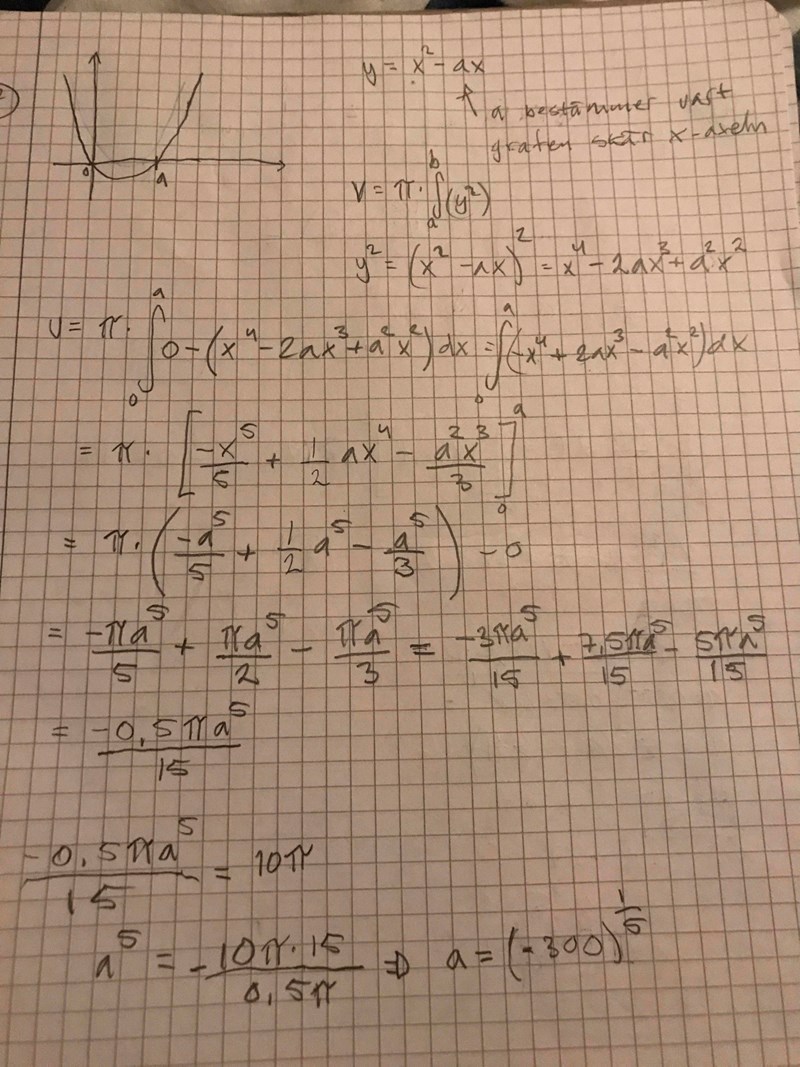 y = x² - ax
↑ a bestämmer vart
grafen skär x-axeln
0 a
V = π · ∫ₐᵇ (y²)
y² = (x² - ax)² = x⁴ - 2ax³ + a²x²
V = π · ∫₀ᵃ 0 - (x⁴ - 2ax³ + a²x²) dx = ∫₀ᵃ (-x⁴ + 2ax³ - a²x²) dx
= π · [-x⁵/5 + 1/2 ax⁴ - a²x³/3]₀ᵃ
= π · (-a⁵/5 + 1/2 a⁵ - a⁵/3) - 0
= -πa⁵/5 + πa⁵/2 - πa⁵/3 = -3πa⁵/15 + 7,5πa⁵/15 - 5πa⁵/15
= -0,5πa⁵/15
-0,5πa⁵/15 = 10π
a⁵ = -10π·15/0,5π ⇒ a = (-300)^(1/5)